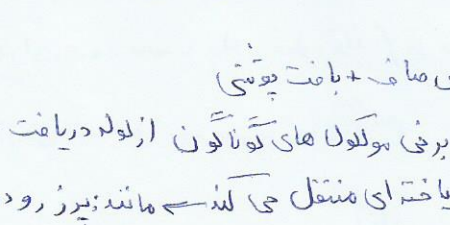 ی صاف + بافت پوششی
برخی مولکول های گوناگون از لوله دریافت
یاخته ای منتقل می کند ← مانند: پرز روده